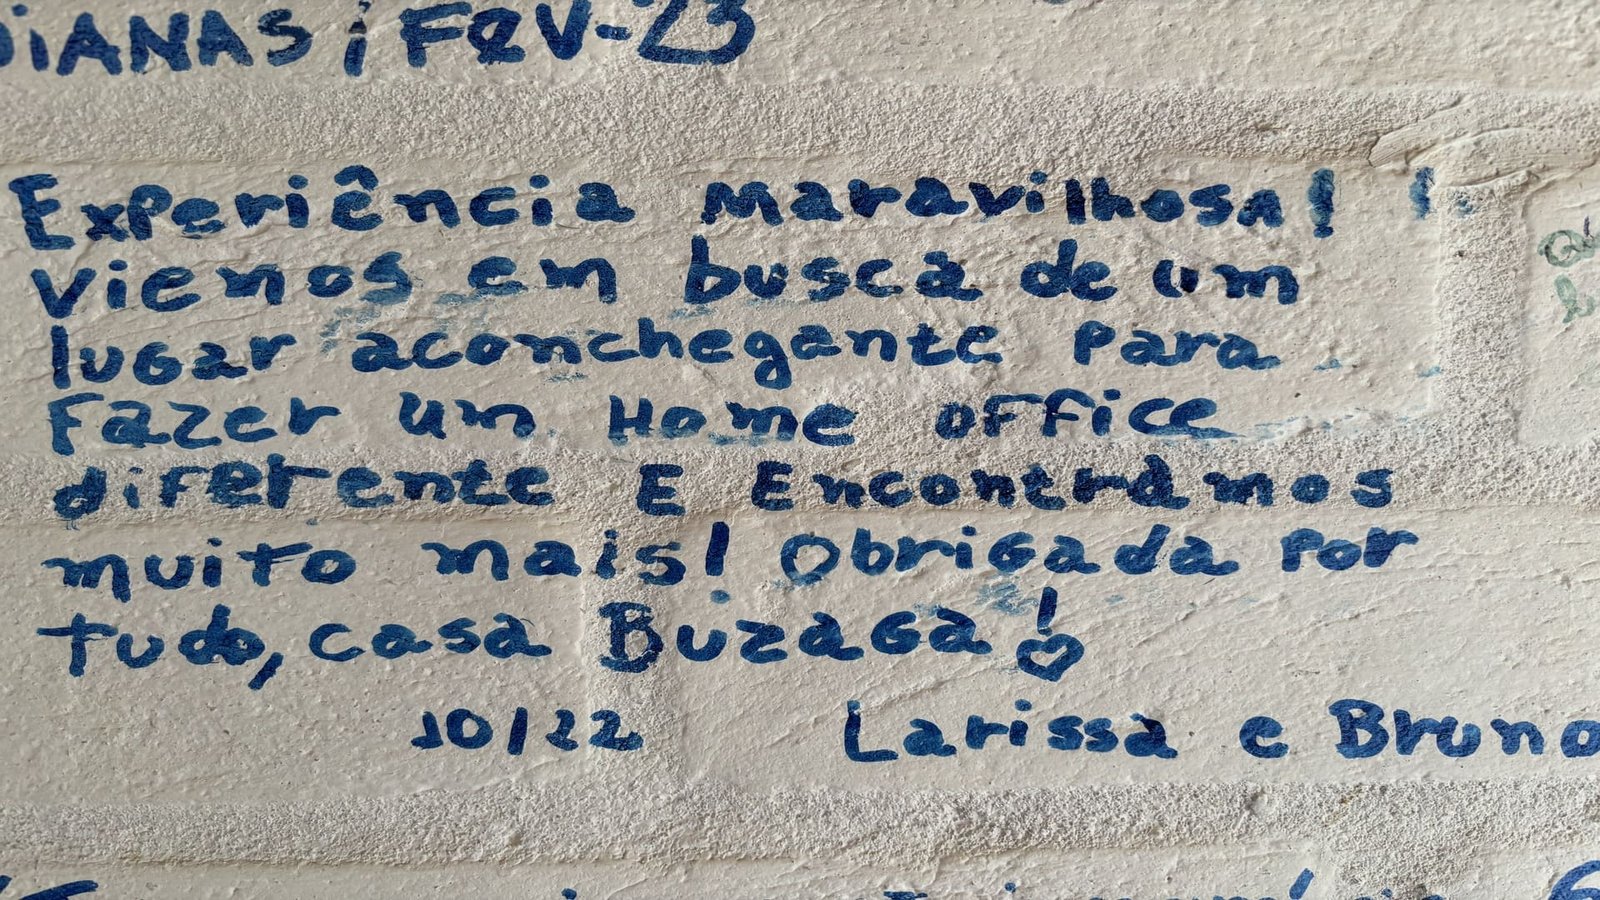 FEV-23
Experiência maravilhosa!
viemos em busca de um
lugar aconchegante para
fazer um Home office
diferente E Encontramos
muito mais! Obrigada por
tudo, casa Buzaga!
10/22 Larissa e Bruno